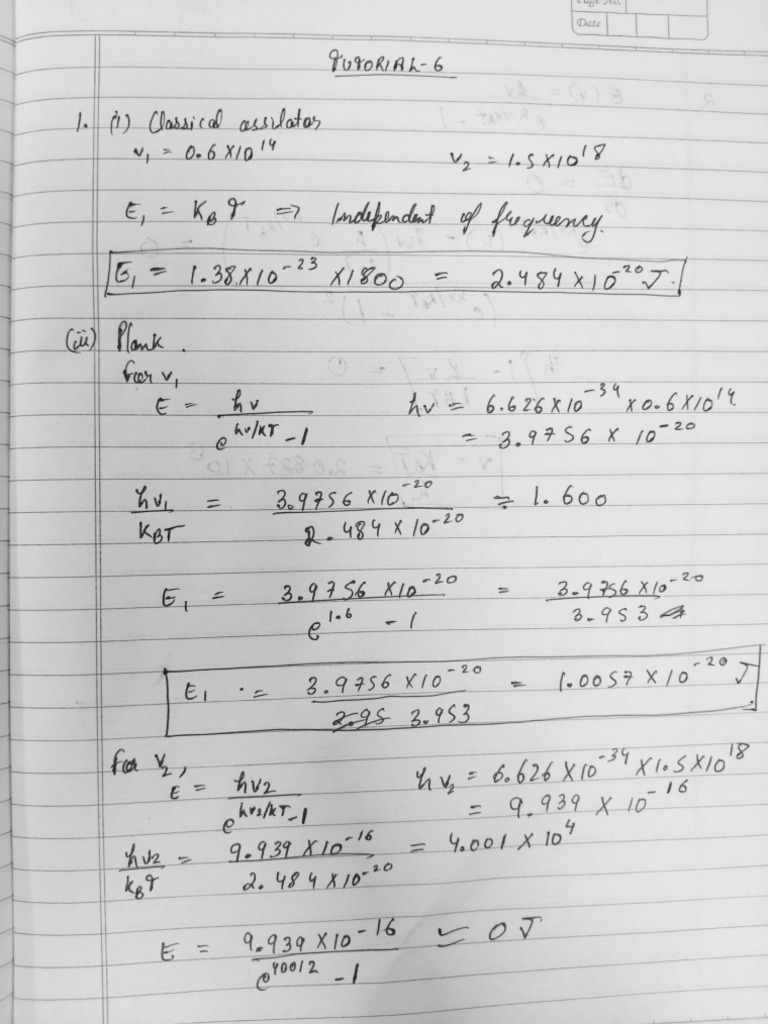 Page No.
Date
TUTORIAL-6
1. (i) Classical assilator
ν₁ = 0.6 X10¹⁴ ν₂ = 1.5X10¹⁸
E₁ = K_B T => Independent of frequency.
E₁ = 1.38X10⁻²³ X1800 = 2.484 X10⁻²⁰ J.
(ii) Plank.
For ν₁,
E = hν / (e^(hν/KT) -1) hν = 6.626X10⁻³⁴ X0.6X10¹⁴
= 3.9756 X 10⁻²⁰
hν₁ / K_BT = 3.9756 X10⁻²⁰ / 2.484 X10⁻²⁰ = 1.600
E₁ = 3.9756 X10⁻²⁰ / (e^1.6 - 1) = 3.9756 X10⁻²⁰ / 3.953
E₁ = 3.9756 X10⁻²⁰ / 3.953 = 1.0057 X 10⁻²⁰ J
For ν₂,
E = hν2 / (e^(hν2/KT) -1) hν₂ = 6.626 X10⁻³⁴ X1.5X10¹⁸
= 9.939 X 10⁻¹⁶
hν2 / k_BT = 9.939 X10⁻¹⁶ / 2.484 X10⁻²⁰ = 4.001 X 10⁴
E = 9.939 X10⁻¹⁶ / (e^40012 -1) ≃ 0 J